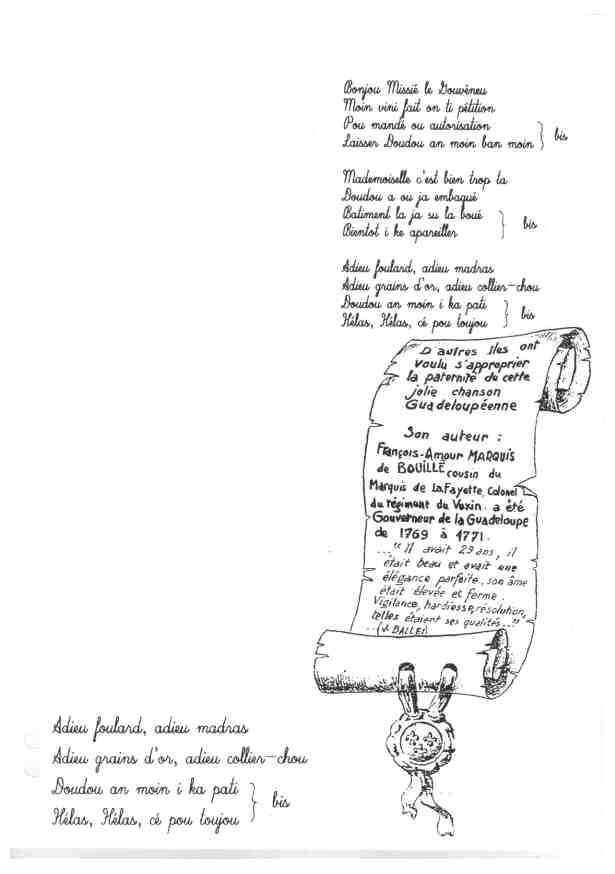 Bonjou Missié le Gouvêneu
Moin vini fait on ti pétition
Pou mandé ou autorisation
Laisser Doudou an moin ban moin
bis
Mademoiselle c'est bien trop ta
Doudou a ou ja embaqué
Batiment la ja su la boué
Bientot i ke apareiller
bis
Adieu foulard, adieu madras
Adieu grains d'or, adieu collier-chou
Doudou an moin i ka pati
Hélas, Hélas, cé pou toujou
bis
D'autres Iles ont
voulu s'approprier
la paternité de cette
jolie chanson
Guadeloupéenne
Son auteur :
François-Amour MARQUIS
de BOUILLÉ cousin du
Marquis de LaFayette, Colonel
du régiment du Vexin. a été
Gouverneur de la Guadeloupe
de 1769 à 1771.
..."Il avait 29 ans, il
était beau et avait une
élégance parfaite, son âme
était élevée et ferme.
Vigilance, hardiesse, résolution,
telles étaient ses qualités..."
...(J. BALLES)
Adieu foulard, adieu madras
Adieu grains d'or, adieu collier-chou
Doudou an moin i ka pati
Hélas, Hélas, cé pou toujou
bis